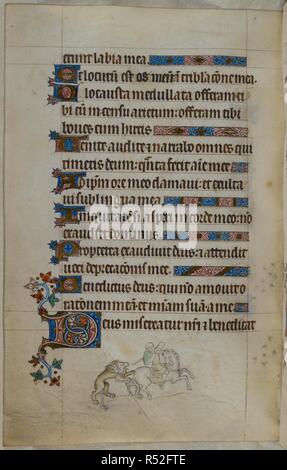 erunt labia mea.
Et locutu est os meu in tribulacone mea.
Holocausta medullata offeram ti
bi cu incensu arietum: offeram tibi
boues cum hircis
Uenite audite et narrabo omnes qui
timetis deum: q̃nta fecit aie mee
Ad ipm ore meo clamaui: et exulta
ui sub lingua mea
Iniquitatem si aspexi in corde meo: no
exaudiet dominus
Propterea exaudiuit deus: et attendit
uoci deprecacois mee
Benedictus deus: qui no amouit o
rationem mea: et miam sua a me
Deus misereatur nri et benedicat
alamy
Image ID: R52FTE
www.alamy.com